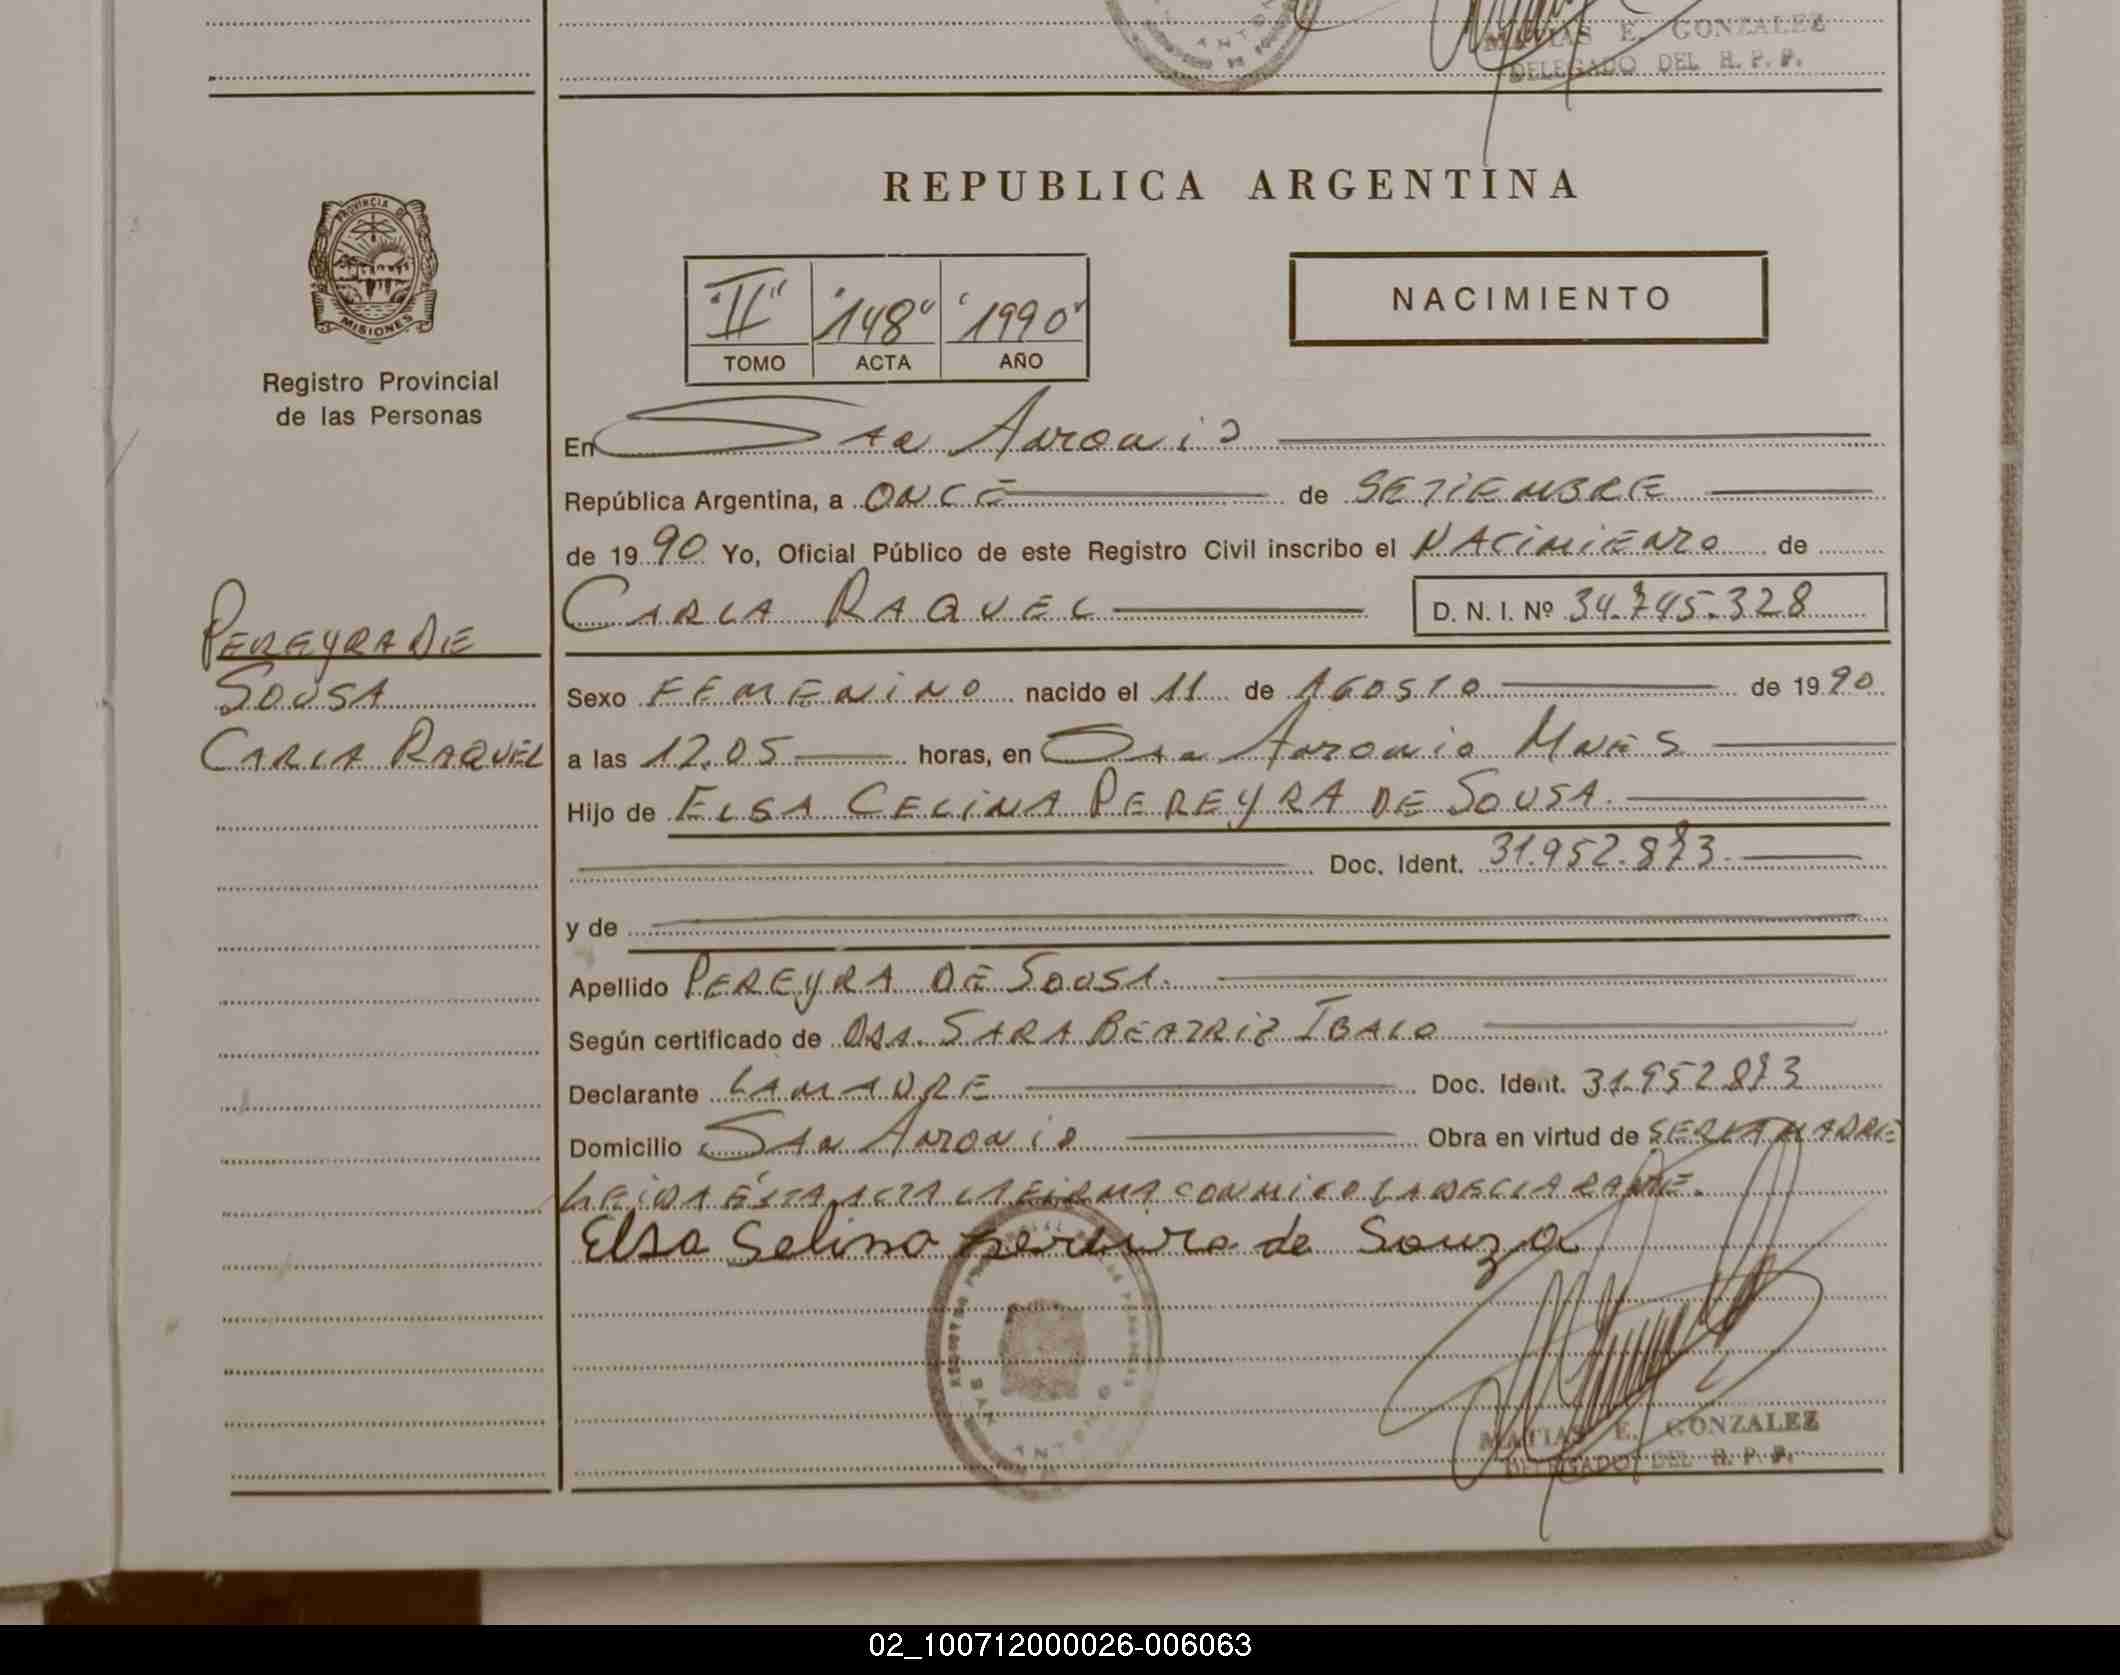 MATIAS E. GONZALEZ
DELEGADO DEL R. P. P.
REPUBLICA ARGENTINA
PROVINCIA DE
MISIONES
"II" "148" "1990"
TOMO ACTA AÑO
NACIMIENTO
Registro Provincial
de las Personas
En San Antonio
República Argentina, a ONCE de SETIEMBRE
de 1990 Yo, Oficial Público de este Registro Civil inscribo el NACIMIENTO de
CARLA RAQUEL D. N. I. Nº 34.745.328
PEREYRA DE
SOUSA
CARLA RAQUEL
Sexo FEMENINO nacido el 11 de AGOSTO de 1990
a las 12.05 horas, en San Antonio Mnes
Hijo de ELSA CELINA PEREYRA DE SOUSA.
Doc. Ident. 31.952.873.
y de
Apellido PEREYRA DE SOUSA.
Según certificado de DRA. SARA BEATRIZ IBALO
Declarante LA MADRE Doc. Ident. 31.952.873
Domicilio San Antonio Obra en virtud de SER LA MADRE
LEIDA ÉSTA ACTA LA FIRMA CONMIGO LA DECLARANTE.
Elsa Selina pereira de Souza
SAN ANTONIO
MATIAS E. GONZALEZ
DELEGADO DEL R. P. P.
02_100712000026-006063